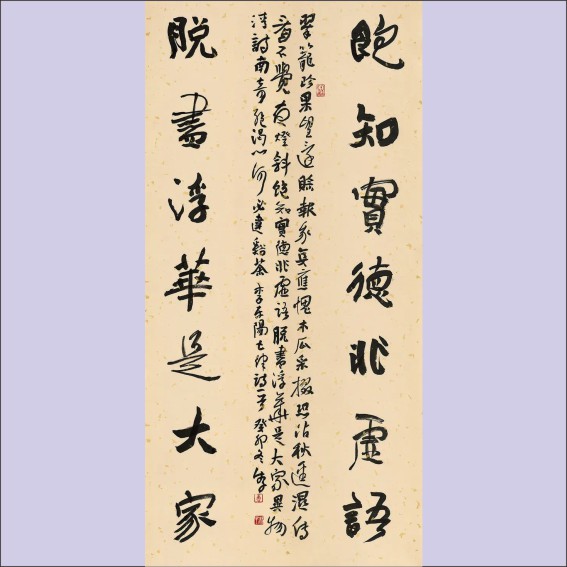 飽知實德非虛語
翠籠珍果望賒報我真應愧木瓜采掇恐沾秋逕濕傳
看不覺夜燈斜飽知實德非虛語脫盡浮華是大家異物
清詩兩奇絕渴心何必建谿茶李東陽七律詩一首癸卯冬
脫盡浮華是大家